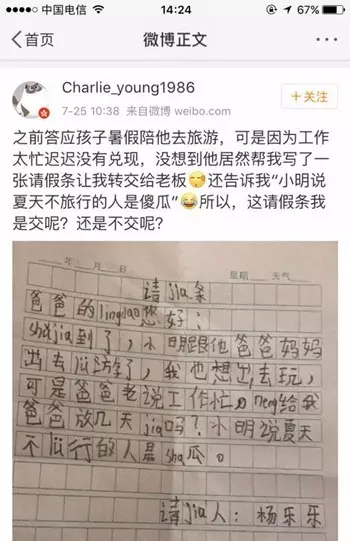 中国电信 14:24 67%
首页 微博正文 ···
Charlie_young1986
7-25 10:38 来自微博 weibo.com
+关注
之前答应孩子暑假陪他去旅游，可是因为工作
太忙迟迟没有兑现，没想到他居然帮我写了一
张请假条让我转交给老板😪还告诉我“小明说
夏天不旅行的人是傻瓜”😂所以，这请假条我
是交呢？还是不交呢？
年 月 日 星期 天气
请jia条
爸爸的lingdao您好：
shǔjia到了，小明跟他爸爸妈妈
出去lǚ
了，我也想出去玩，
可是爸爸老说工作忙。neng给我
爸爸放几天jia吗？小明说夏天
不lǚ行的人是sha瓜。
请jia人：杨乐乐